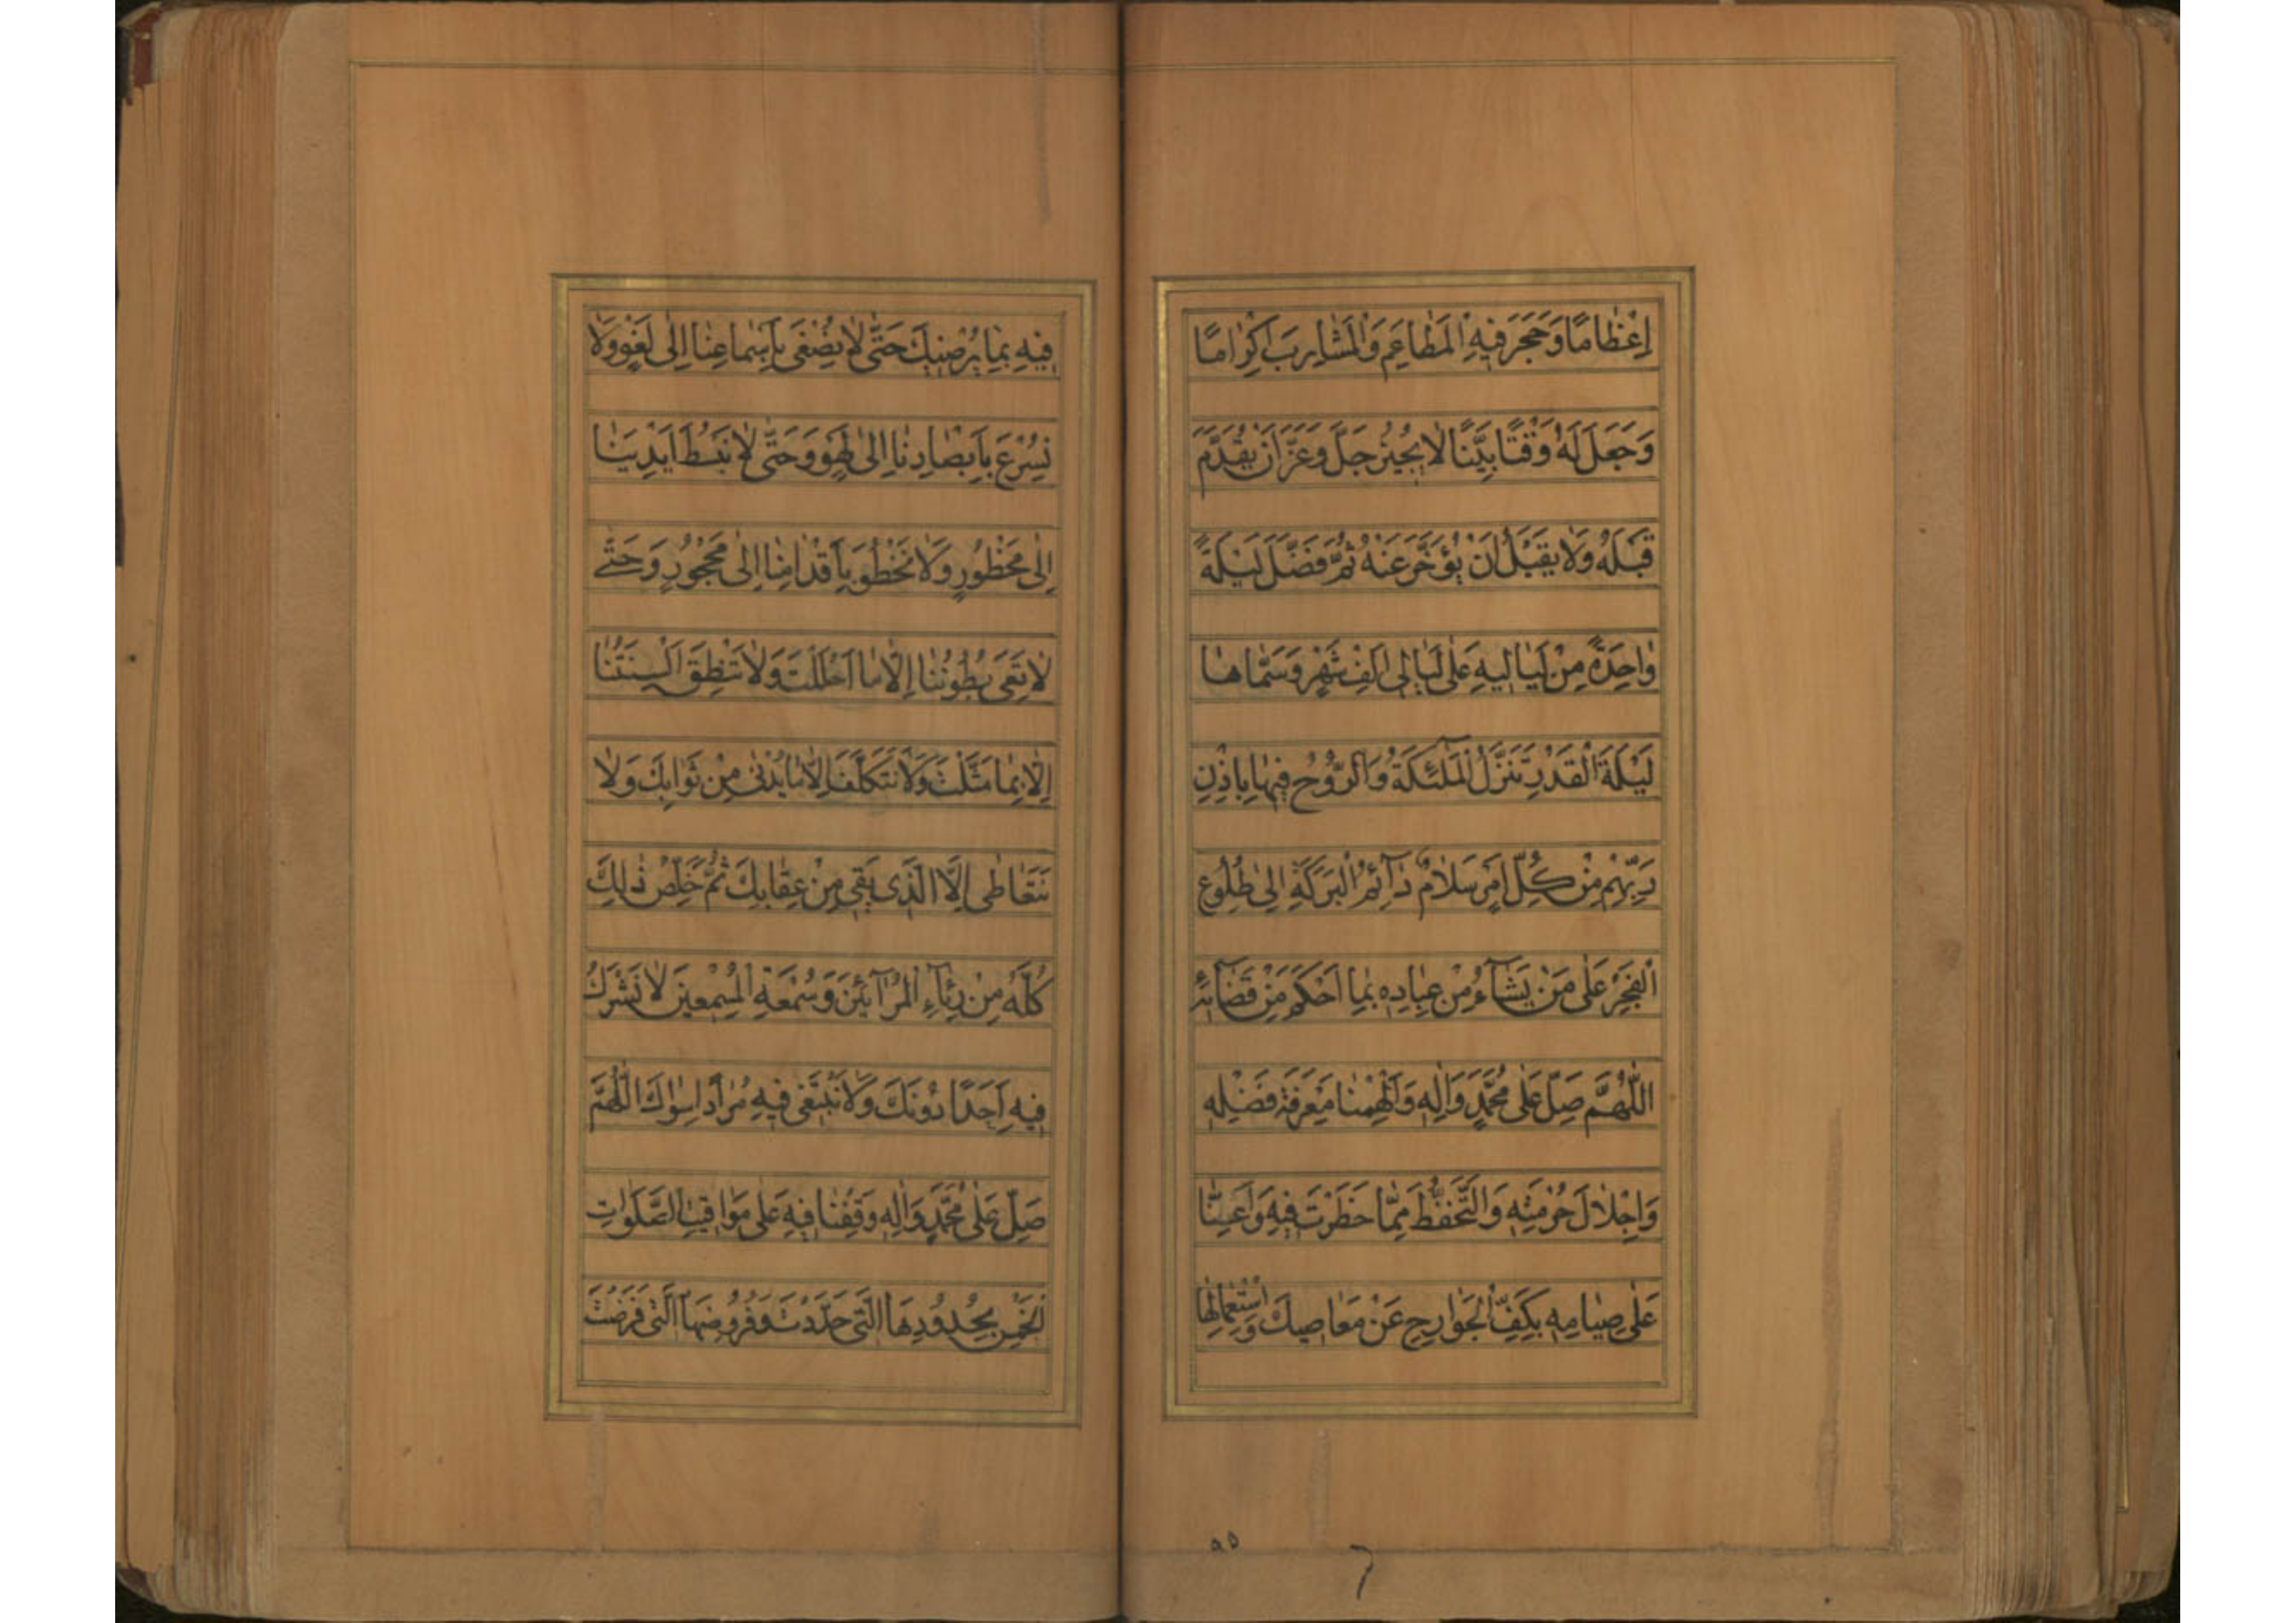 اِعْظامًا وَحَجَرَ فيهِ الْمَطاعِمَ وَالْمَشارِبَ اِكْرامًا
وَجَعَلَ لَهُ وَقْتًا بَيِّنًا لا يُجيزُ جَلَّ وَعَزَّ اَنْ يُقَدَّمَ
قَبْلَهُ وَلا يَقْبَلُ اَنْ يُؤَخَّرَ عَنْهُ ثُمَّ فَضَّلَ لَيْلَةً
واحِدَةً مِنْ لَياليهِ عَلى لَيالي اَلْفِ شَهْرٍ وَسَمّاها
لَيْلَةَ الْقَدْرِ تَنَزَّلُ الْمَلٰئِكَةُ وَالرُّوحُ فيها بِاِذْنِ
رَبِّهِمْ مِنْ كُلِّ اَمْرٍ سَلامٌ دآئِمُ الْبَرَكَةِ اِلى طُلُوعِ
الْفَجْرِ عَلى مَنْ يَشآءُ مِنْ عِبادِهِ بِما اَحْكَمَ مِنْ قَضآئِهِ
اَللّهُمَّ صَلِّ عَلى مُحَمَّدٍ وَالِهِ وَاَلْهِمْنا مَعْرِفَةَ فَضْلِهِ
وَاِجْلالَ حُرْمَتِهِ وَالتَّحَفُّظَ مِمّا حَظَرْتَ فيهِ وَاَعِنّا
عَلى صِيامِهِ بِكَفِّ الْجَوارِحِ عَنْ مَعاصيكَ وَاسْتِعْمالِها
٩٥
فيهِ بِما يُرْضيكَ حَتّى لا نُصْغِيَ بِاَسْماعِنا اِلى لَغْوٍ وَلا
نُسْرِعَ بِاَبْصارِنا اِلى لَهْوٍ وَحَتّى لا نَبْسُطَ اَيْدِيَنا
اِلى مَحْظُورٍ وَلا نَخْطُوَ بِاَقْدامِنا اِلى مَحْجُورٍ وَحَتّى
لا تَعِيَ بُطُونُنا اِلّا ما اَحْلَلْتَ وَلا تَنْطِقَ اَلْسِنَتُنا
اِلّا بِما مَثَّلْتَ وَلا نَتَكَلَّفَ اِلّا ما يُدْني مِنْ ثَوابِكَ وَلا
نَتَعاطى اِلَّا الَّذي يَقي مِنْ عِقابِكَ ثُمَّ خَلِّصْ ذٰلِكَ
كُلَّهُ مِنْ رِئآءِ الْمُرآئينَ وَسُمْعَةِ الْمُسْمِعينَ لا نُشْرِكُ
فيهِ اَحَدًا دُونَكَ وَلا نَبْتَغي فيهِ مُرادًا سِواكَ اَللّهُمَّ
صَلِّ عَلى مُحَمَّدٍ وَالِهِ وَقِفْنا فيهِ عَلى مَواقيتِ الصَّلَواتِ
الْخَمْسِ بِحُدُودِهَا الَّتي حَدَّدْتَ وَفُرُوضِهَا الَّتي فَرَضْتَ